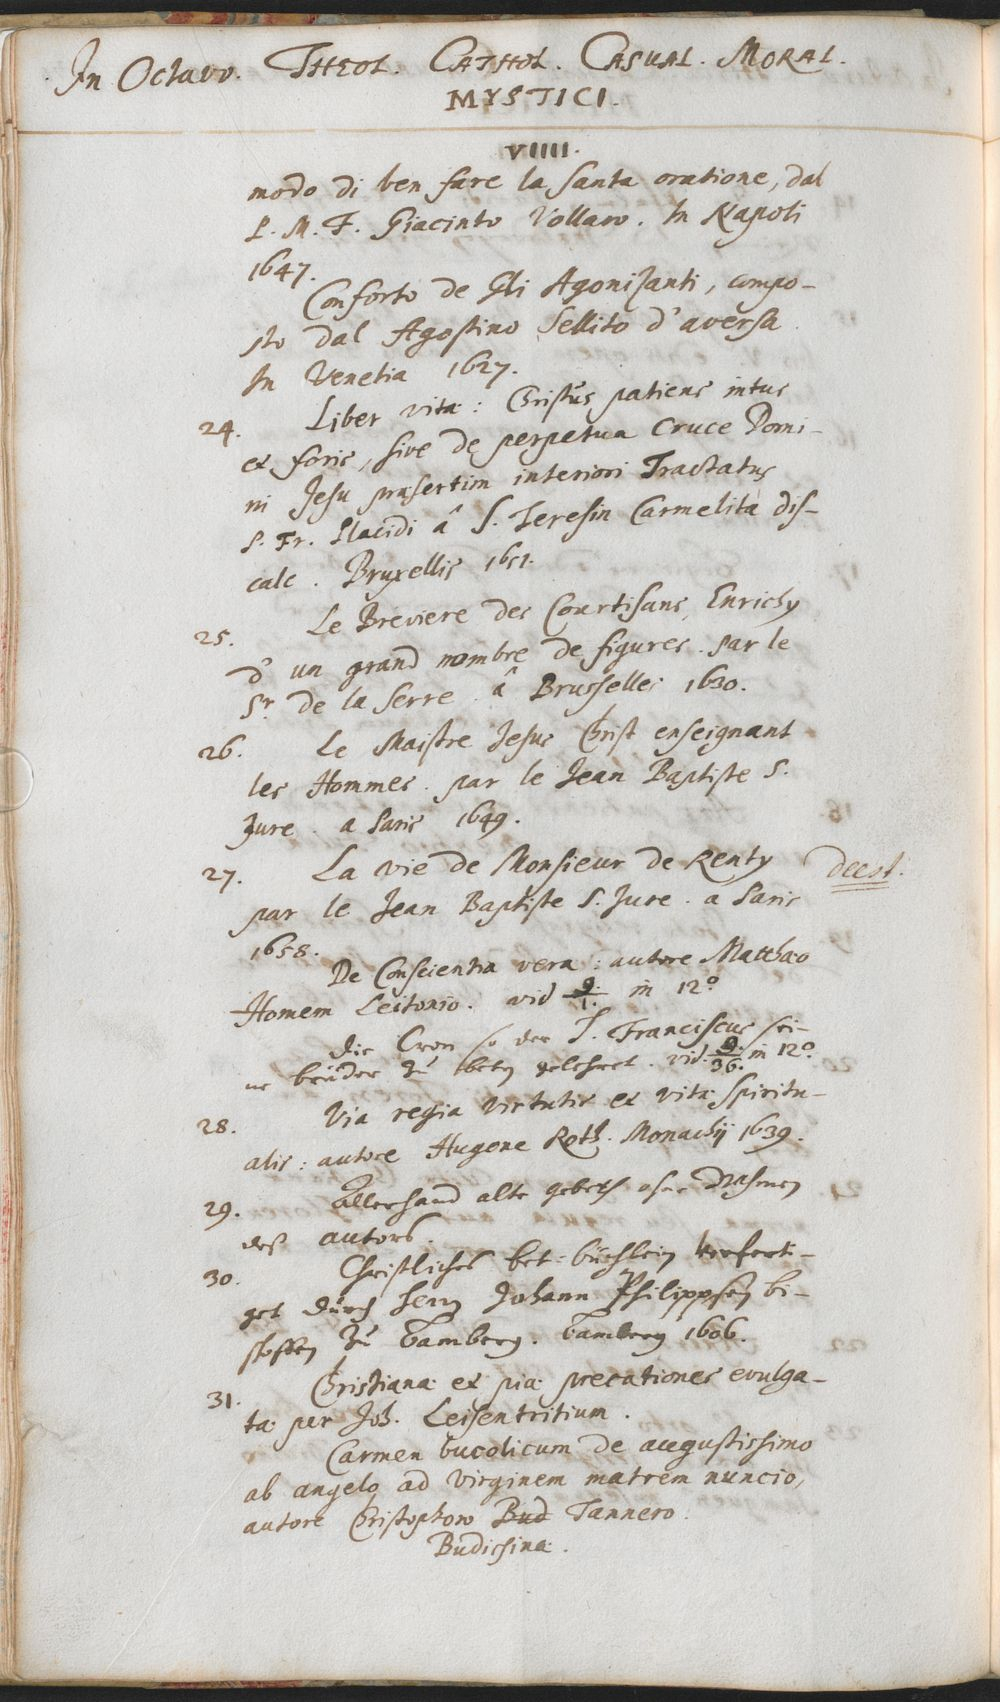 In Octavo. THEOL. CATHOL. CASUAL. MORAL.
MYSTICI.
VIIII.
modo di ben fare la santa oratione, dal
P. M. F. Giacinto Vollaro. In Napoli
1647.
Conforto de Gli Agonizanti, compo-
sto dal Agostino Sellito d'aversa
In Venetia 1627.
24. Liber vitæ: Christus patiens intus
et foris, sive de perpetua Cruce Domi-
ni Jesu præsertim interiori Tractatus
P. Fr. Placidi â S. Teresia Carmelitæ dis-
calc. Bruxellis 1651.
25. Le Breviere des Courtisans, Enrichy
d'un grand nombre de figures. par le
Sr. de la Serre. â Brusselles 1630.
26. Le Maistre Jesus Christ enseignant
les Hommes. par le Jean Baptiste S.
Jure. a Paris 1649.
27. La vie de Monsieur de Renty deest.
par le Jean Baptiste S. Jure. a Paris
1658.
De Conscientia vera: autore Matthæo
Homem Leitonio. vid 9./1. in 12°
Die Cron so der S. Franciscus sei-
ne brüder zu beten gelehret. vid. 9./36. in 12°.
28. Via regia virtutis et vitæ spiritu-
alis: autore Hugone Roth. Monachij 1639.
29. Allerhand alte gebeth ohne Nahmen
deß autors.
30. Christliches bet-büchlein verferti-
get durch Herrn Johann Philippsen bi-
schoffen zu Bamberg. Bamberg 1606.
31. Christianæ et piæ precationes evulga-
tæ per Joh. Leisentritium.
Carmen bucolicum de augustissimo
ab angelo ad Virginem matrem nuncio,
autore Christophoro Bud Tannero.
Budissinæ.